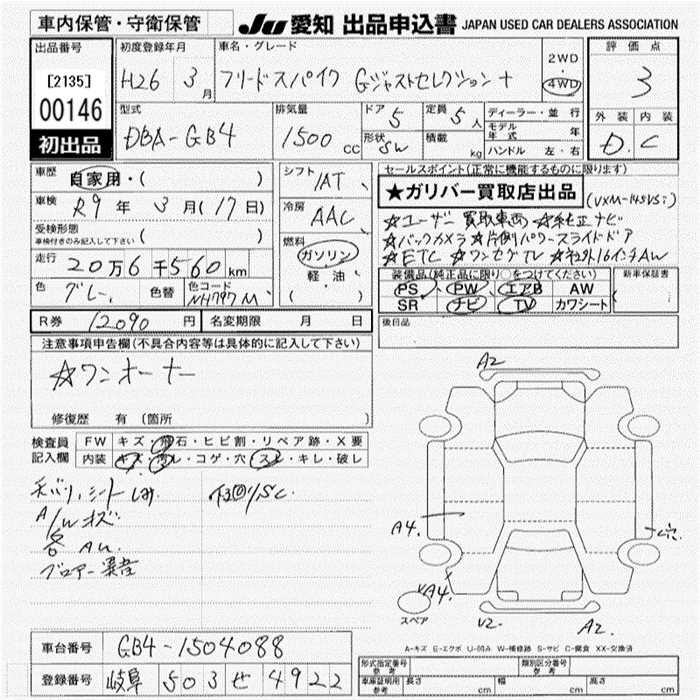 車内保管・守衛保管
JU 愛知 出品申込書 JAPAN USED CAR DEALERS ASSOCIATION
出品番号
[2135]
00146
初出品
初度登録年月
H26 3月
車名・グレード
フリードスパイク Gジャストセレクション+
2WD
・
4WD
評価点
3
型式
DBA-GB4
排気量
1500 cc
ドア
5
定員
5人
形状
SW
積載
kg
ディーラー・並行
モデル年式 年
ハンドル 左・右
外装 内装
D. C
車歴 自家用・( )
車検 R9年 3月(17日)
受検形態
車検付きのみ記入して下さい ( )
走行 20万6千560km
色 グレー 色替 色コード NH797M
シフト
IAT
冷房
AAC
燃料
ガソリン
軽・油
( )
セールスポイント(正常に機能するものに限ります)
★ガリバー買取店出品
(VXM-145VSi)
☆ユーザー買取車両 ☆純正ナビ
☆バックカメラ ☆片側パワースライドドア
☆ETC ☆ワンセグTV ☆社外16インチAW
装備品(純正品に限り○をつけてください)
PS PW エアB AW
SR ナビ TV カワシート
新車保証書
後日品
R券 12090円 名変期限 月 日
注意事項申告欄(不具合内容等は具体的に記入して下さい)
☆ワンオーナー
修復歴 有 (箇所 )
検査員
記入欄
FW キズ・飛石・ヒビ割・リペア跡・X要
内装 キズ・汚レ・コゲ・穴・スレ・キレ・破レ
シートしみ
A/Wキズ
各AU.
ブロアー異音
下回りSC.
A2
A4.
A4.
U2-
A2.
スペア
A-キズ E-エクボ U-凹み W-補修跡 S-サビ C-腐食 XX-交換済
車台番号 GB4-1504088
登録番号 岐阜 503 せ 4922
形式指定番号
参考
類別区分番号
参考
車庫証明用
参考
長さ cm
幅 cm
高さ cm